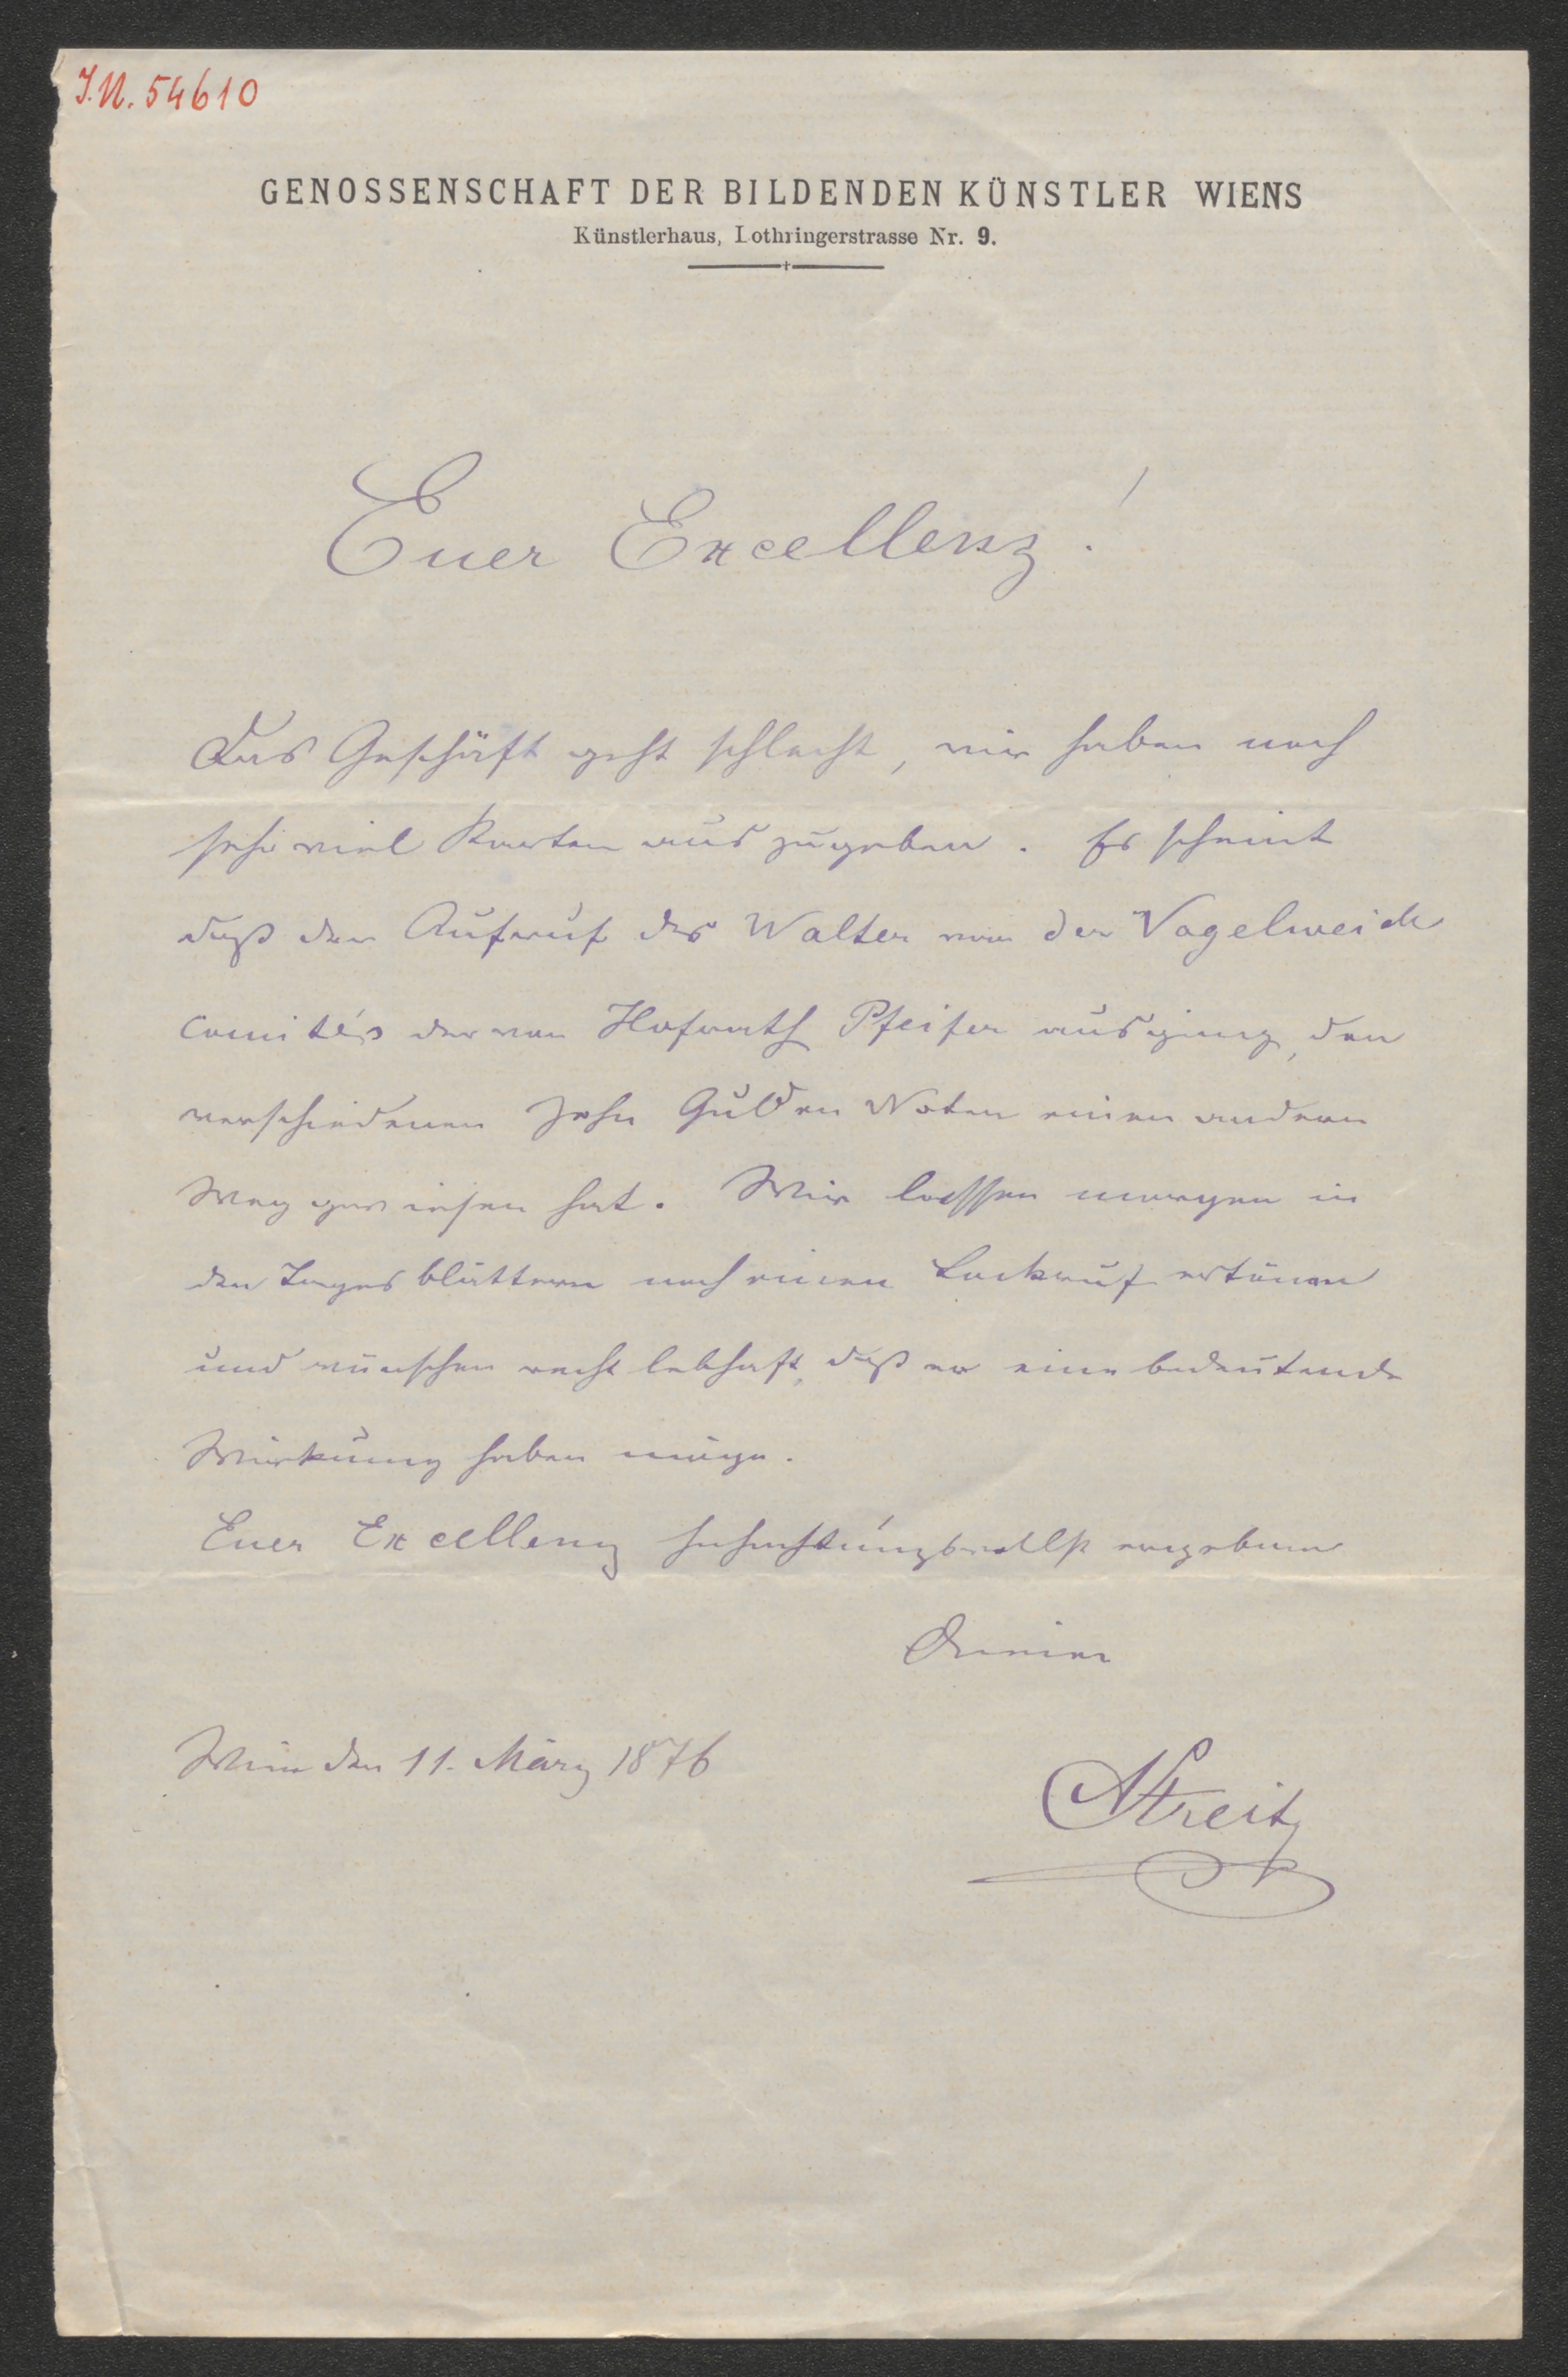 J.N. 54610
GENOSSENSCHAFT DER BILDENDEN KÜNSTLER WIENS
Künstlerhaus, Lothringerstrasse Nr. 9.
Euer Excellenz!
Das Geschäft geht schlecht, wir haben noch
sehr viel Karten auszugeben. Es scheint
daß der Aufruf des Walter von der Vogelweide
Comités der von Hofrath Pfeifer ausging, den
verschiedenen Zehn Gulden Noten einen andern
Weg gewiesen hat. Wir lassen morgen in
den Tagesblättern noch einen Lockruf ertönen
und wünschen recht lebhaft, daß er eine bedeutende
Wirkung haben möge.
Euer Excellenz hochachtungsvollst ergebener
Diener
Wien den 11. März 1876
Streit